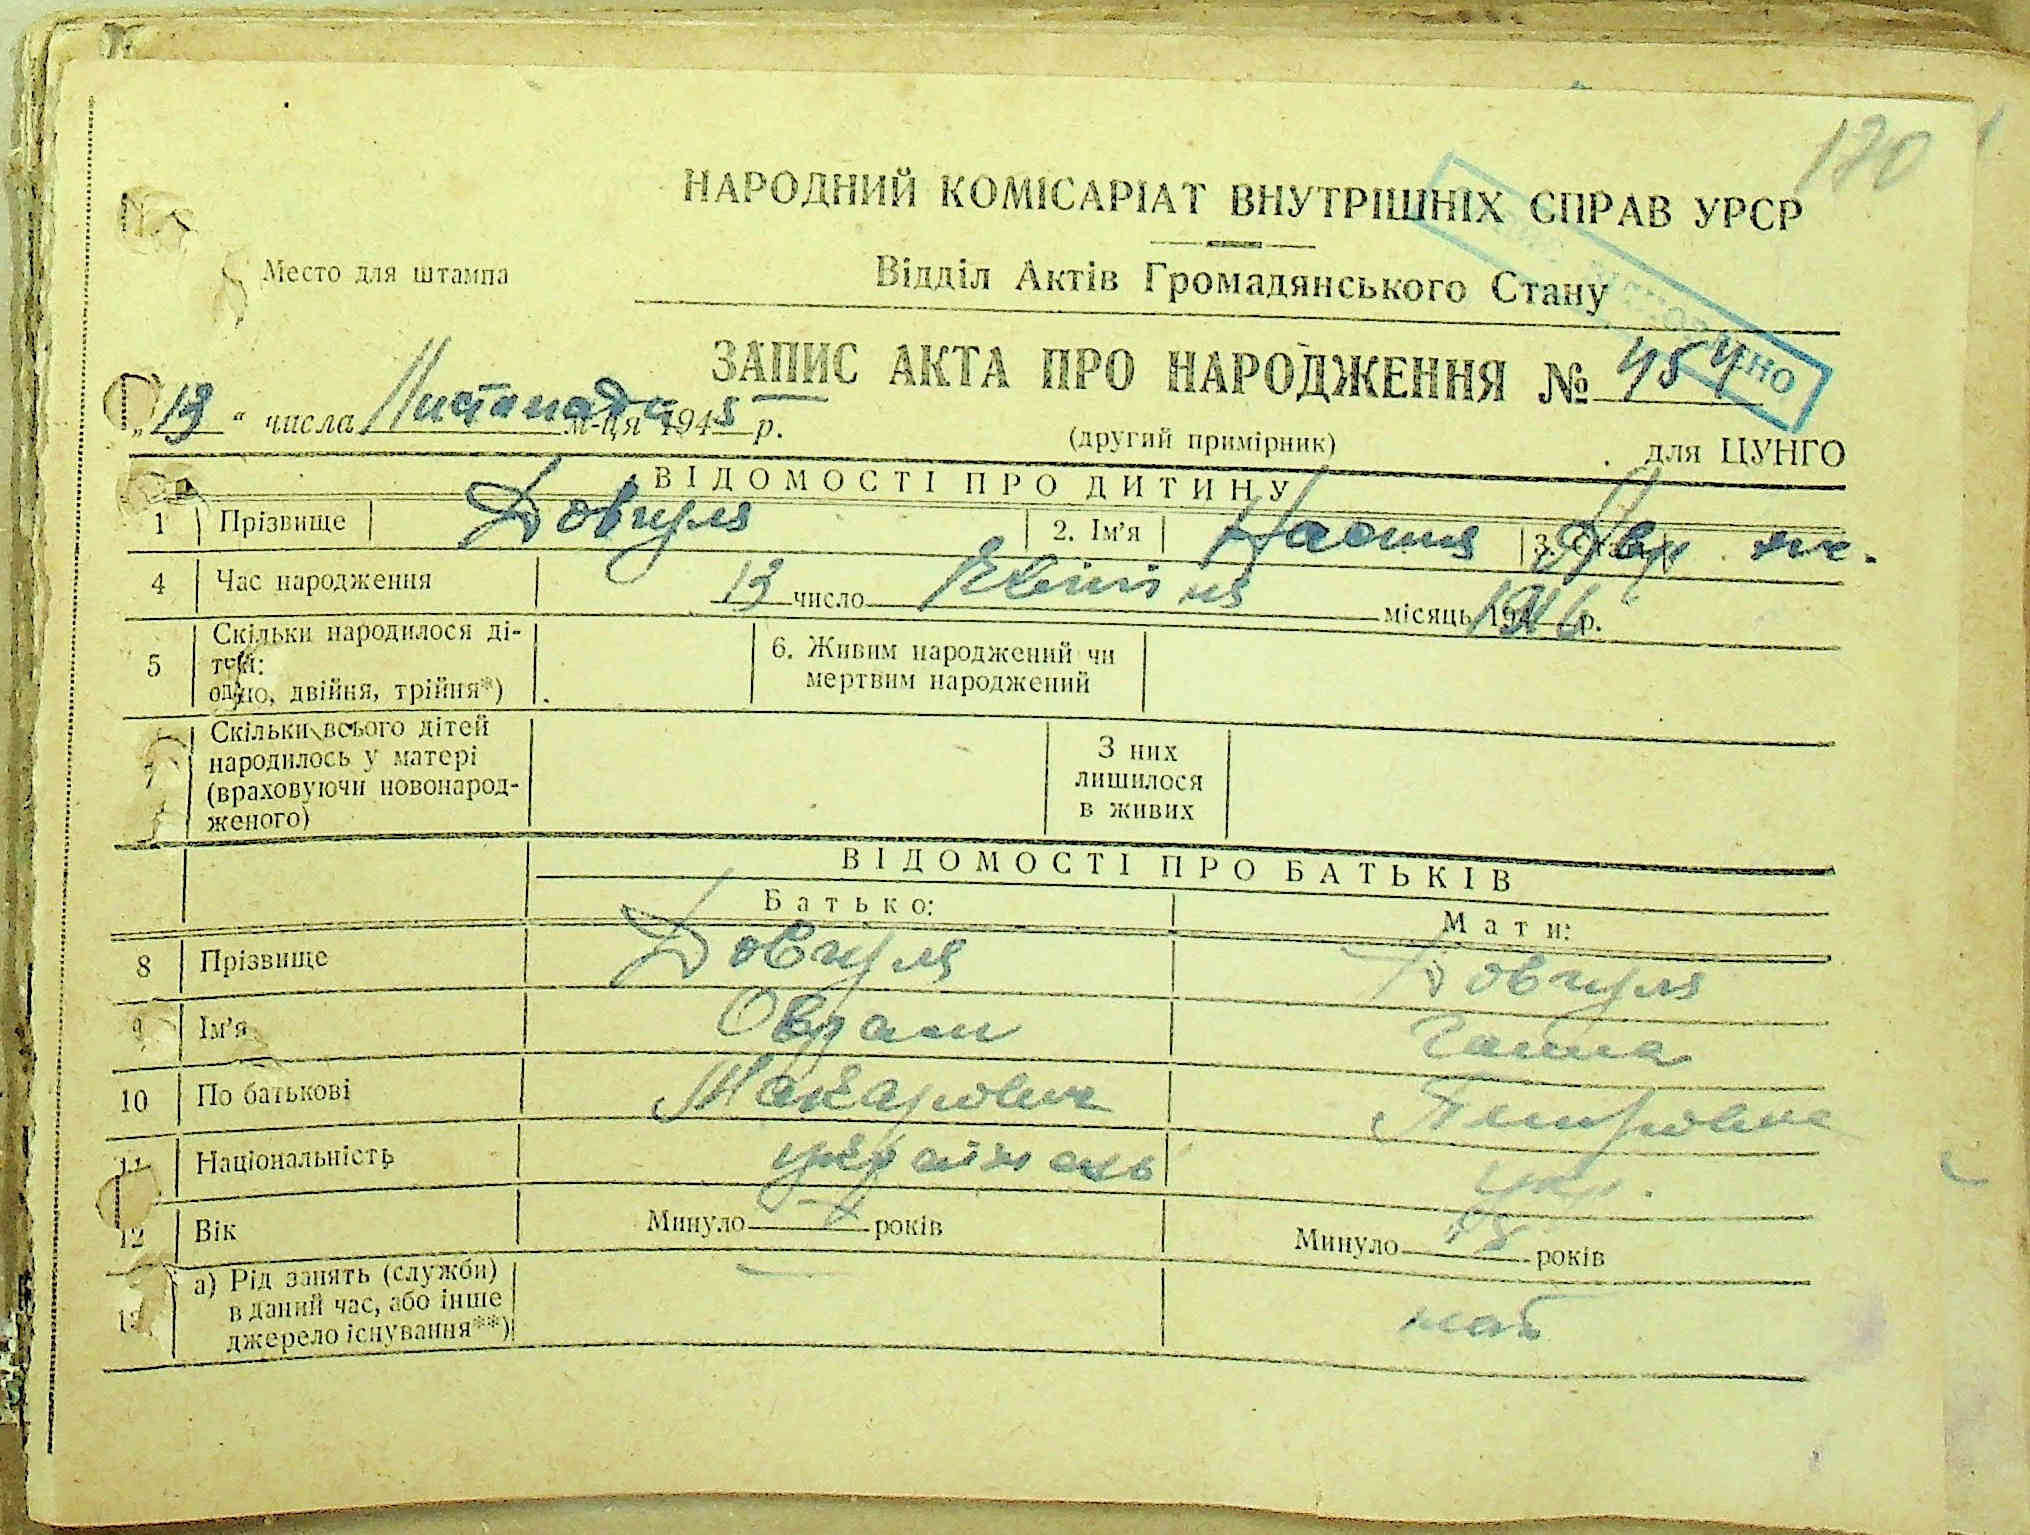 120
НАРОДНИЙ КОМІСАРІАТ ВНУТРІШНІХ СПРАВ УРСР
Место для штампа
Відділ Актів Громадянського Стану
ЗАПИС АКТА ПРО НАРОДЖЕННЯ №
„13“ числа Листопада м-ця 1945 р.
(другий примірник) для ЦУНГО
ВІДОМОСТІ ПРО ДИТИНУ
1 Прізвище Довгуля 2. Ім'я 3. Стать
4 Час народження 13 число Квітня місяць р.
5 Скільки народилося ді-
тей:
одно, двійня, трійня*)
6. Живим народжений чи
мертвим народжений
7 Скільки всього дітей
народилось у матері
(враховуючи новонарод-
женого)
З них
лишилося
в живих
ВІДОМОСТІ ПРО БАТЬКІВ
Батько: Мати:
8 Прізвище Довгуля Довгуля
9 Ім'я Оврам Ганна
10 По батькові Макарович Петровна
11 Національність українець укр.
12 Вік Минуло — років Минуло років
13 а) Рід занять (служби)
в даний час, або інше
джерело існування**)